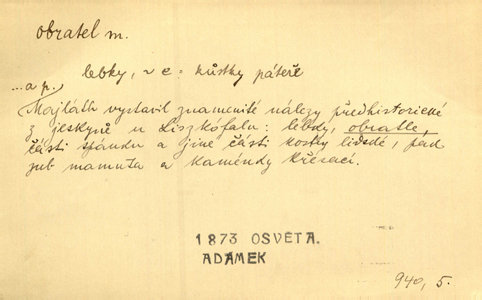 obratel m.
lebky, v e: kůstky páteře
...a p.)
Majláth vystavil znamenité nálezy předhistorické
z jeskyně u Liszkófalu: lebky, obratle,
části spánku a jiné části kostry lidské, pak
zub mamuta a kamínky křesací.
1873 OSVĚTA.
ADÁMEK
940, 5.